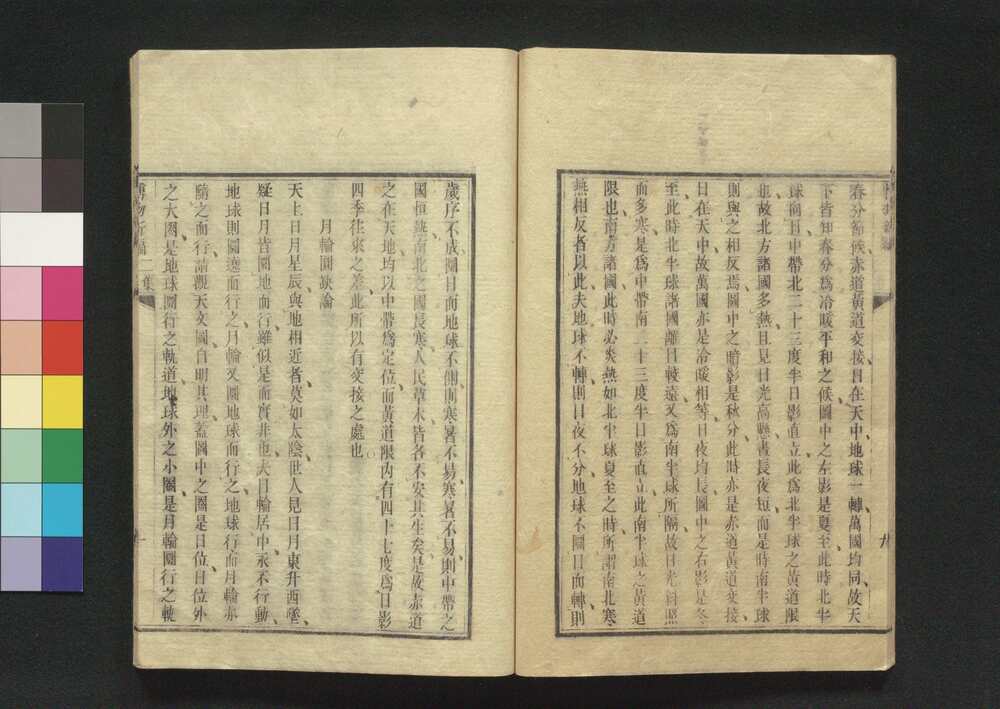 春分節候赤道黃道交接日在天中地球一轉萬國均同故天
下皆知春分爲冷暖平和之候圖中之左影是夏至此時北半
球向日中帶北二十三度半日影直立此爲北半球之黃道限
也故北方諸國多熱且見日光高懸晝長夜短而是時南半球
則與之相反焉圖中之暗影是秋分此時亦是赤道黃道交接
日在天中故萬國亦是冷暖相等日夜均長圖中之右影是冬
至此時北半球諸國離日較遠又爲南半球所隔故日光斜照
而多寒是爲中帶南二十三度半日影直立此南半球之黃道
限也南方諸國此時必炎熱如北半球夏至之時所謂南北寒
無相反者以此夫地球不轉則日夜不分地球不圜日而轉則
歲序不成圜日而地球不側則寒暑不易寒暑不易則中帶之
國恒熱南北之國長寒人民草木皆各不安其生矣是故赤道
之在天地均以中帶爲定位而黃道限內有四十七度爲日影
四季往來之差此所以有交接之處也
月輪圓缺論
天上日月星辰與地相近者莫如太陰世人見日月東升西墜
疑日月皆圜地而行雖似是而實非也夫日輪居中永不行動
地球則圜遶而行之月輪又圜地球而行之地球行而月輪亦
隨之而行請觀天文圖自明其理蓋圖中之圈是日位日位外
之大圈是地球圜行之軌道地球外之小圈是月輪圜行之軌
博物新編二集